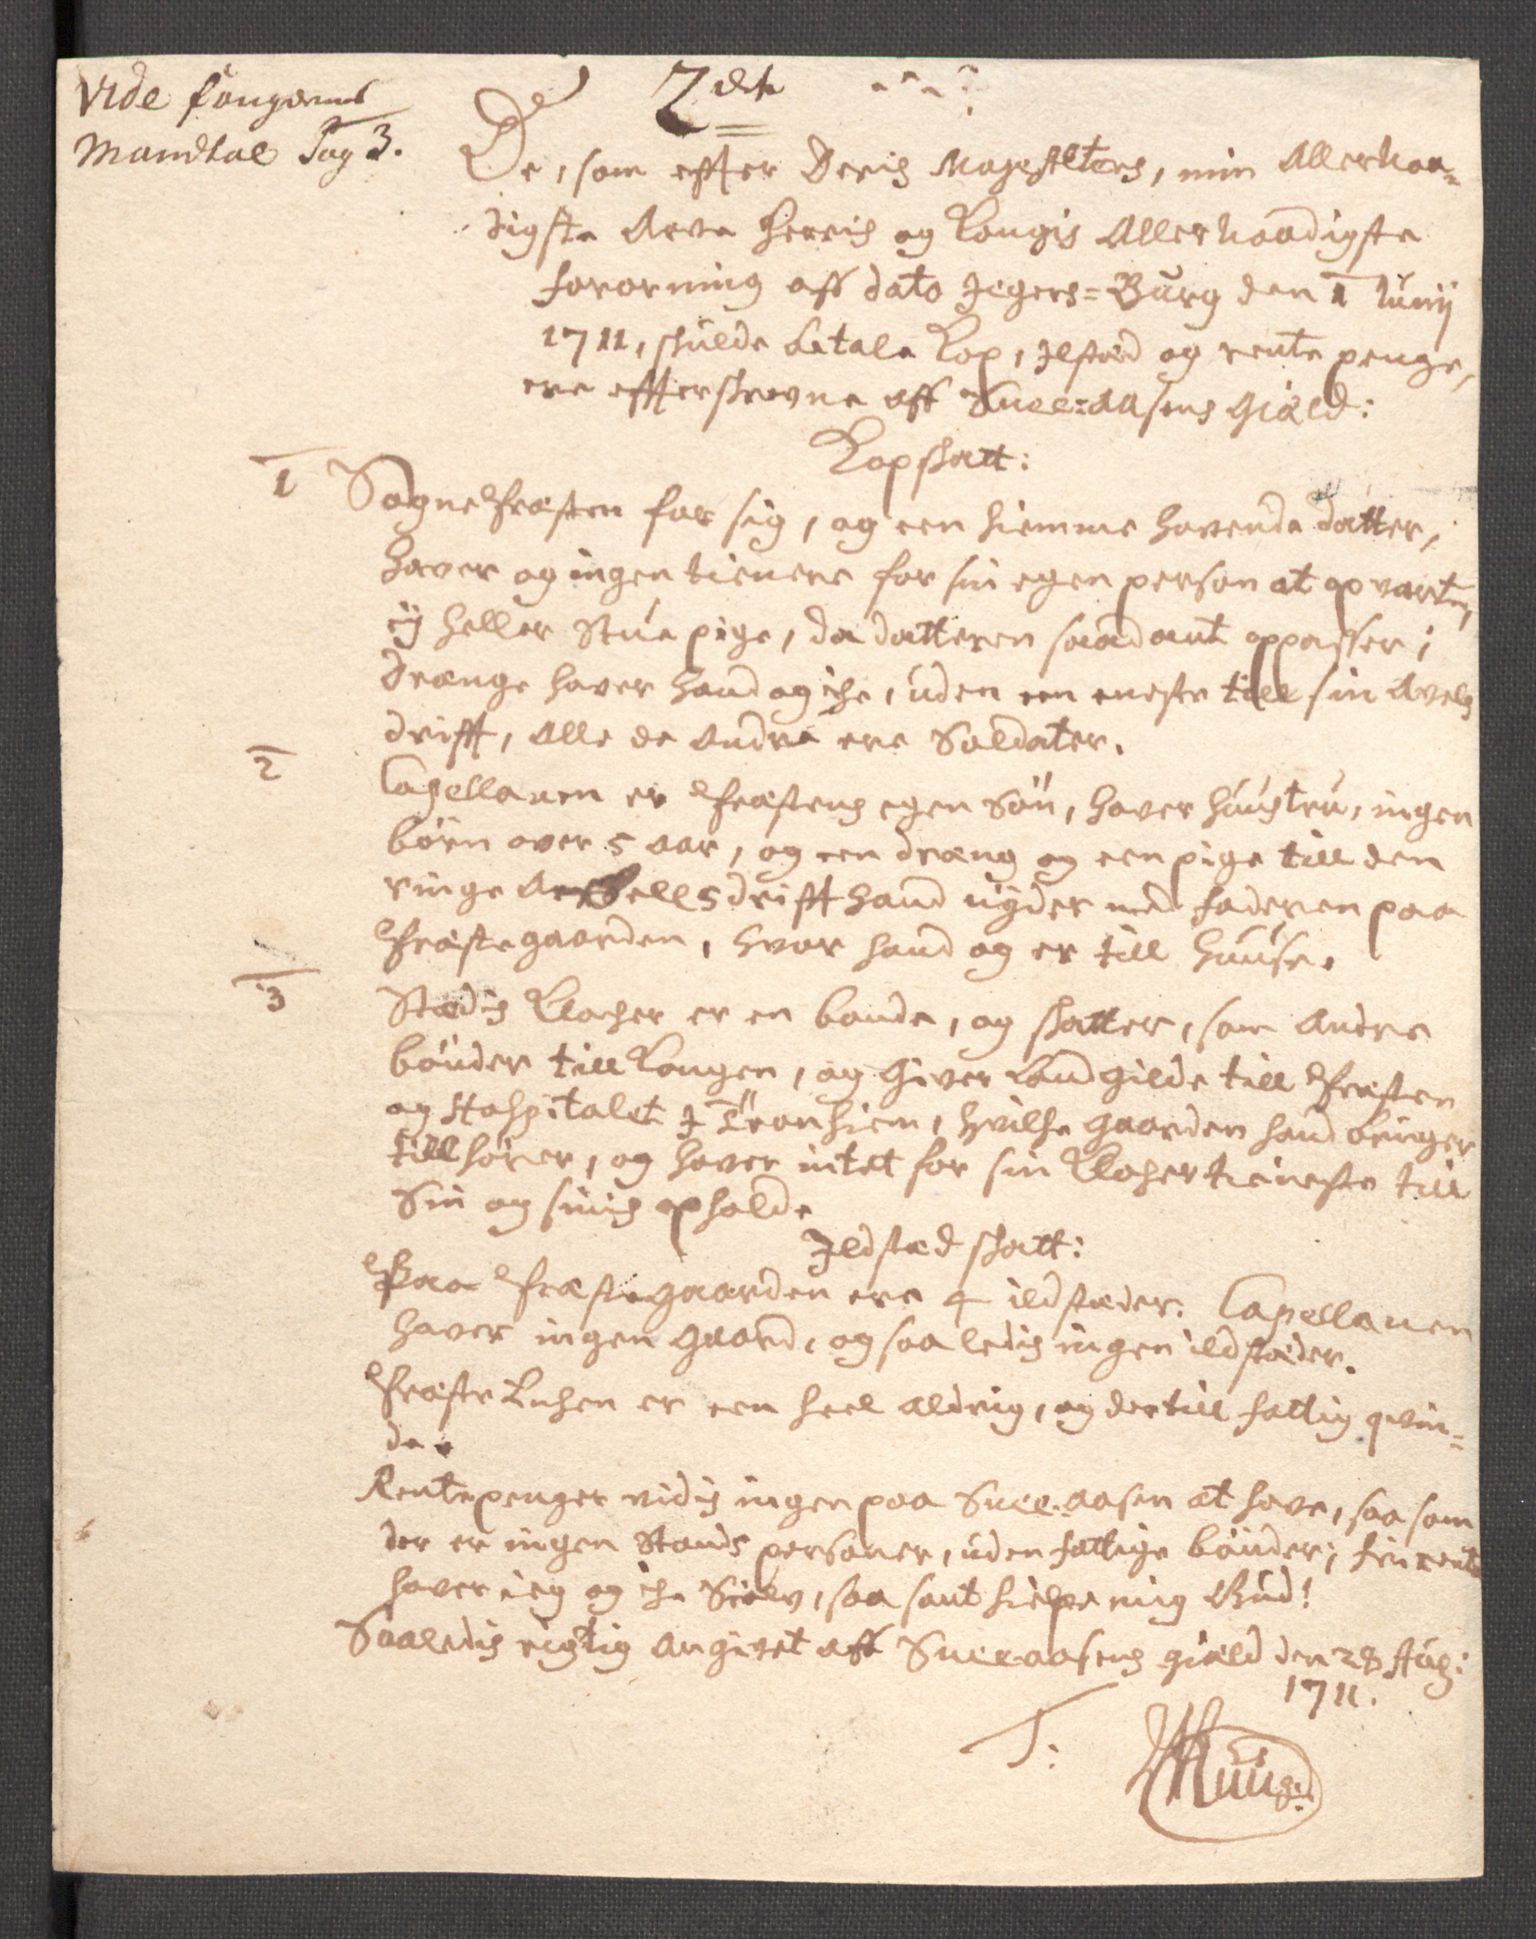 Vide fougerens
Mandtal Pag 3.
De, som effter Deris Mayestters, min Allernaa=
digste Arve Herris og Kongis Allernaadigste
fororning aff dato Jegers=Burg den 1 Junij
1711, skulde betale Kop, Ilsted og rente penge,
ere effterskrevne aff Snee=aasens Gield:
Kopskatt:
1 Sognepræsten for sig, og een hiemme havende datter,
haver og ingen tienere for sin egen person at opvarte,
ij heller Stue pige, da datteren saadant oppasser;
Drænge haver hand og iche, uden een eneste till sin Avels
drifft, alle de andre ere Soldater.
2 Capellanen er Præstens egen Sön, haver hüüstrü, ingen
börn over 5 aar, og een dræng og een pige till den
ringe drifft hand nÿder med faderen paa
Præstegaarden, hvor hand og er till hüüse.
3 Stædis Klocher er en bonde, og skatter, som andre
bönder till Kongen, og giver Landgilde till Præsten
og Hospitalet I Tronhiem, hvilke gaarden hand bruger
tillhörer, og haver intet for sin Klocher tieneste till
Sin og sinis ophold.
Ildsted skatt:
Paa Præstegaarden ere 4 ildsteder. Capellanen
haver ingen gaard, og saaledis ingen ildsteder.
Præste Enken er een heel aldrig, og dertill fattig qvin=
de.
Rentepenger vidis ingen paa Snee-aasen at have, saa som
der er ingen Stands personer, uden fattige bönder; rente
haver ieg og iche Sielv, saa sant hielpe mig Gud!
Saaledis rigtig angivet aff Sneeaasens gield den 28 Aug:
1711.
T: